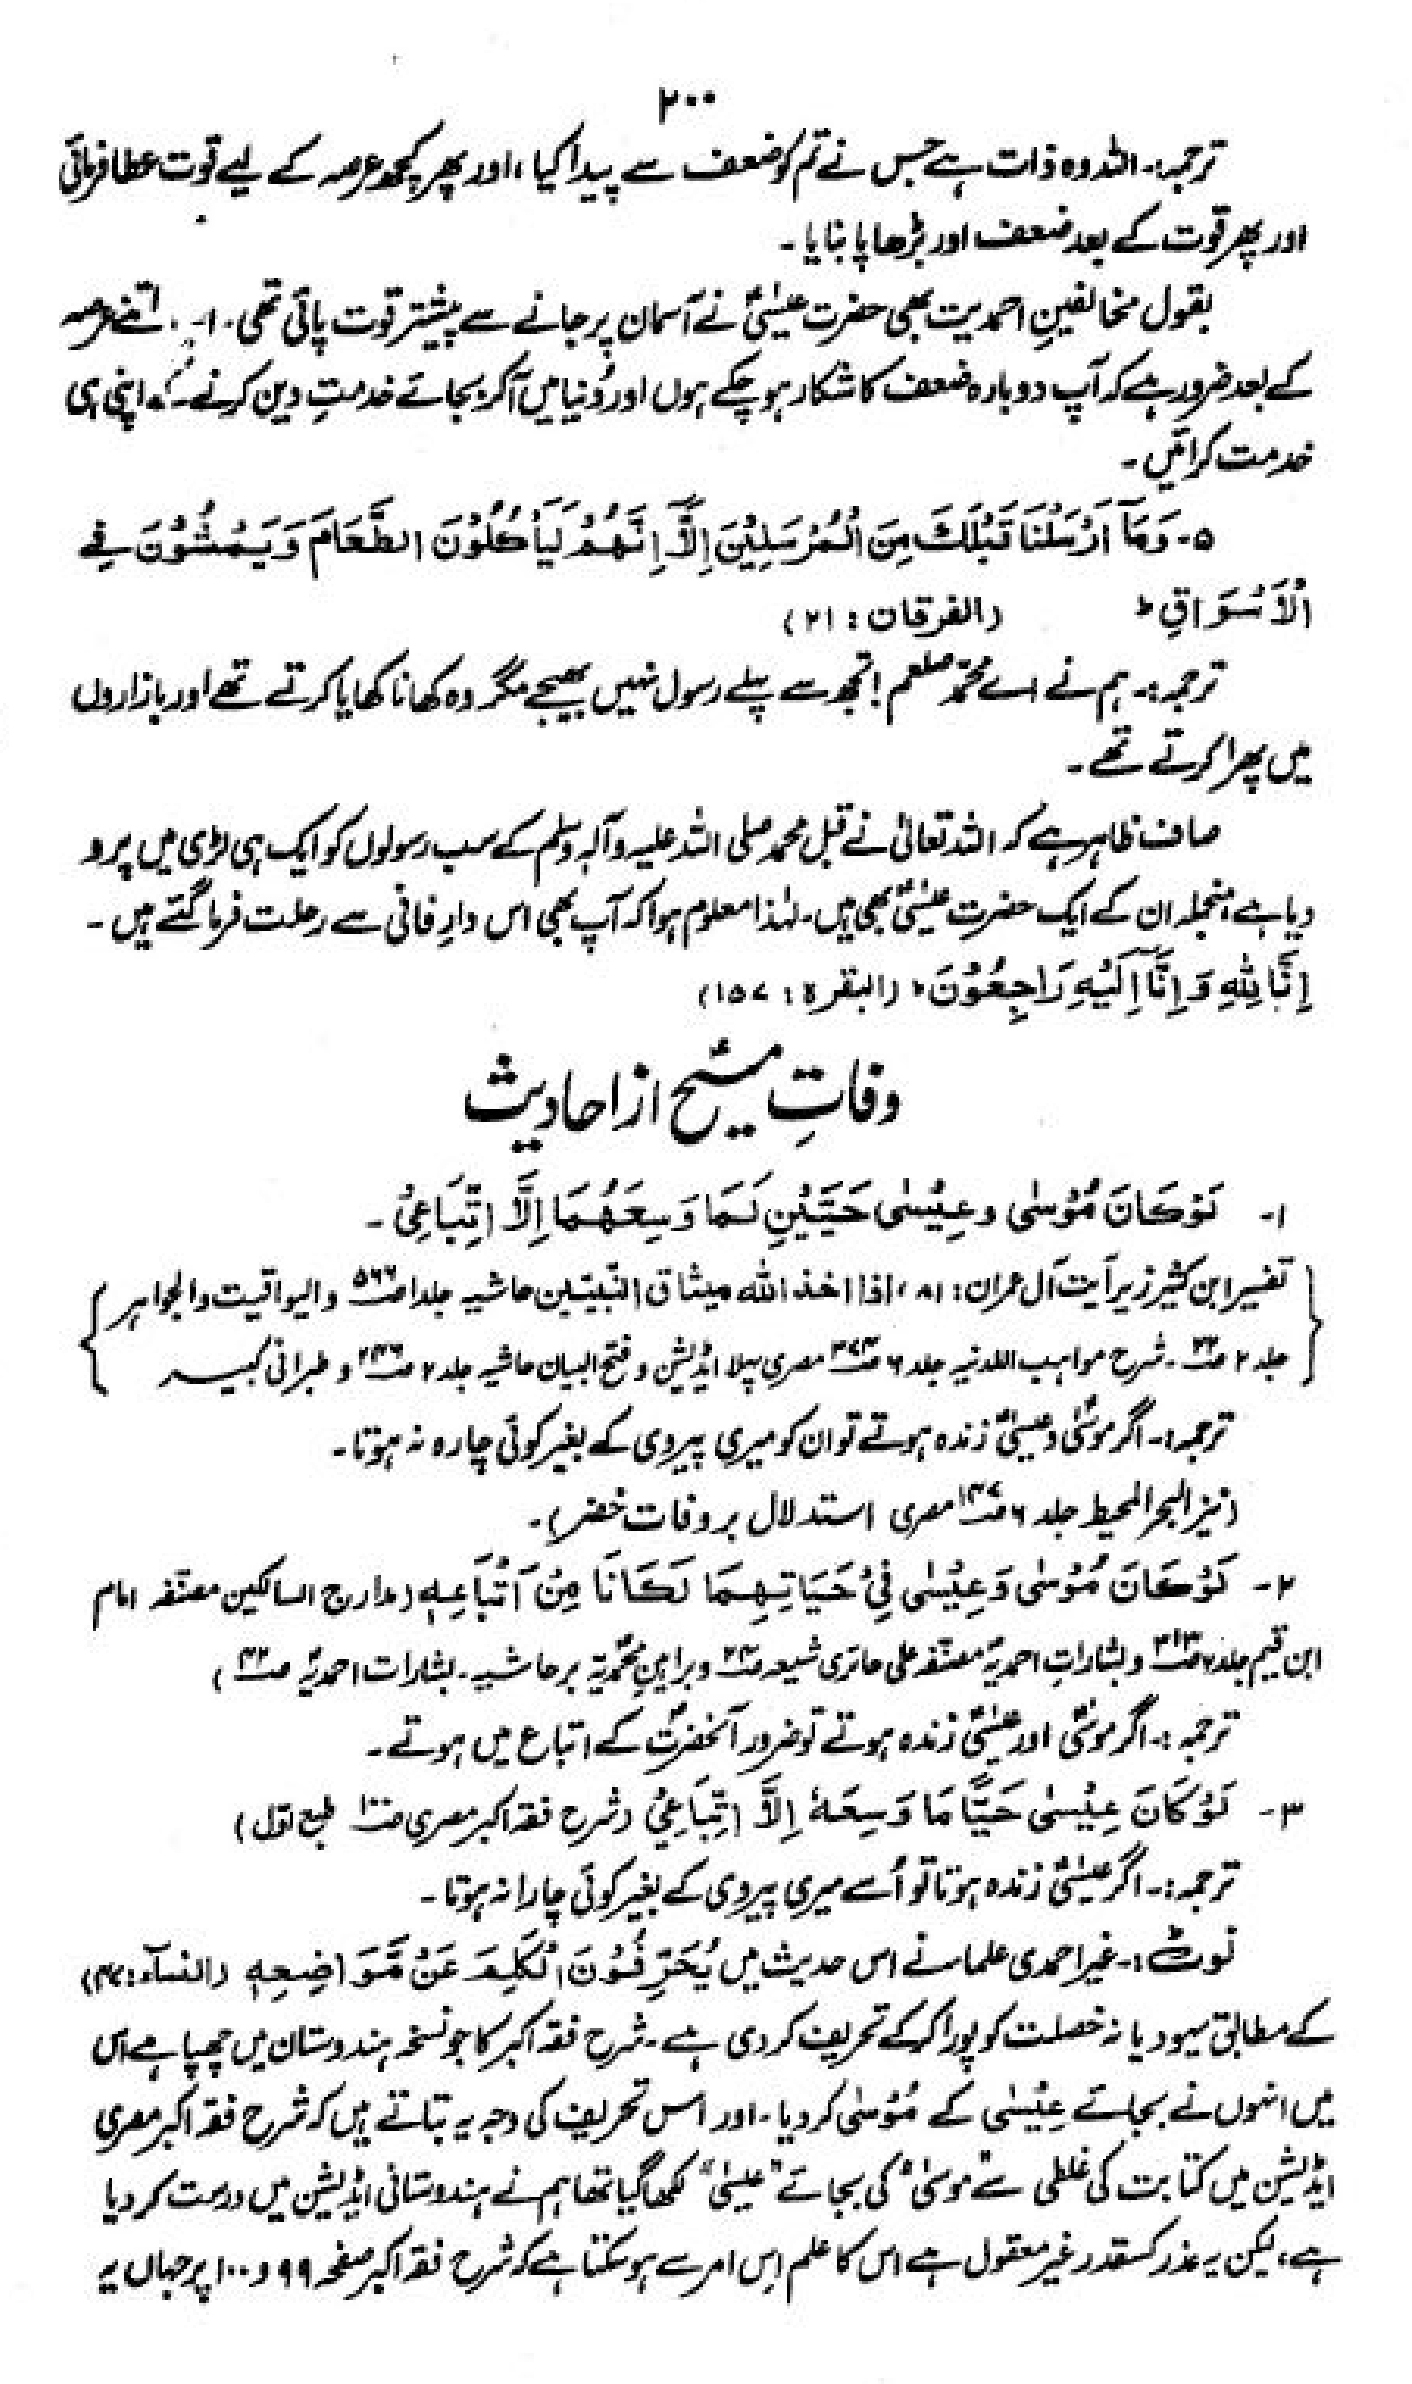 ۲۰۰
ترجمہ:۔ اللہ وہ ذات ہے جس نے تم کو ضعف سے پیدا کیا، اور پھر کچھ عرصہ کے لیے قوت عطا فرمائی
اور پھر قوت کے بعد ضعف اور بڑھاپا بنایا۔
بقول مخالفینِ احمدیت بھی حضرت عیسیٰؑ نے آسمان پر جانے سے پیشتر قوت پائی تھی۔ اتنے عرصہ
کے بعد ضرور ہے کہ آپ دوبارہ ضعف کا شکار ہو چکے ہوں اور دُنیا میں آکر بجائے خدمتِ دین کرنے کے اپنی ہی
خدمت کرائیں۔
۵۔ وَمَآ اَرْسَلْنَا قَبْلَكَ مِنَ الْمُرْسَلِيْنَ اِلَّآ اِنَّهُمْ لَيَاْكُلُوْنَ الطَّعَامَ وَيَمْشُوْنَ فِي
الْاَسْوَاقِ ط (الفرقان : ۲۱)
ترجمہ:۔ ہم نے اے محمّد صلعم! تجھ سے پہلے رسول نہیں بھیجے مگر وہ کھانا کھایا کرتے تھے اور بازاروں
میں پھرا کرتے تھے۔
صاف ظاہر ہے کہ اللہ تعالیٰ نے قبل محمد صلی اللہ علیہ وآلہ وسلم کے سب رسولوں کو ایک ہی لڑی میں پرو
دیا ہے منجملہ ان کے ایک حضرت عیسیٰؑ بھی ہیں۔ لہٰذا معلوم ہوا کہ آپ بھی اس دارِ فانی سے رحلت فرما گئے ہیں۔
اِنَّا لِلّٰهِ وَاِنَّآ اِلَيْهِ رَاجِعُوْنَ ط (البقرة : ۱۵۷)
وفاتِ مسیحؑ از احادیث
۱۔ لَوْكَانَ مُوْسٰى وعِيْسٰى حَيَّيْنِ لَمَا وَسِعَهُمَا اِلَّا اتِّبَاعِيْ۔
تفسیر ابن کثیر زیر آیت آل عمران : ۸۱، اذا اخذ اللہ میثاق النّبیّین حاشیہ جلد ۱ صـ۵۶۶ والیواقیت والجواہر
جلد ۲ صـ۲۲۔ شرح مواہب اللدنیہ جلد ۶ صـ۳۷۴ مصری پہلا ایڈیشن و فتح البیان حاشیہ جلد ۲ صـ۲۴۶ و طبرانی کبیر
ترجمہ:۔ اگر موسیٰؑ و عیسیٰؑ زندہ ہوتے تو ان کو میری پیروی کے بغیر کوئی چارہ نہ ہوتا۔
(نیز البحر المحیط جلد ۶ صـ۱۴۷ مصری استدلال بر وفات خضر)۔
۲۔ لَوْكَانَ مُوْسٰى وَعِيْسٰى فِيْ حَيَاتِهِمَا لَكَانَا مِنْ اَتْبَاعِهٖ (مدارج السالکین مصنّفہ امام
ابن قیم جلد ۲ صـ۳۱۳ و بشاراتِ احمدیہ مصنّفہ علی حائری شیعہ صـ۲۴ و براہینِ محمّدیہ بر حاشیہ۔ بشارات احمدیہ صـ۴۲)
ترجمہ:۔ اگر موسیٰؑ اور عیسیٰؑ زندہ ہوتے تو ضرور آنحضرتؐ کے اتباع میں ہوتے۔
۳۔ لَوْكَانَ عِيْسٰى حَيًّا مَا وَسِعَهٗ اِلَّا اتِّبَاعِيْ (شرح فقہ اکبر مصری صـ۱۰۰ طبع اوّل)
ترجمہ:۔ اگر عیسیٰؑ زندہ ہوتا تو اُسے میری پیروی کے بغیر کوئی چارا نہ ہوتا۔
نوٹ:۔ غیر احمدی علماء نے اس حدیث میں يُحَرِّفُوْنَ الْكَلِمَ عَنْ مَّوَاضِعِهٖ (النسآء: ۴۷)
کے مطابق یہودیانہ خصلت کو پورا کرکے تحریف کر دی ہے۔ شرح فقہ اکبر کا جو نسخہ ہندوستان میں چھپا ہے اس
میں انہوں نے بجائے عِیْسٰی کے مُوْسٰی کر دیا۔ اور اس تحریف کی وجہ یہ بتاتے ہیں کہ شرح فقہ اکبر مصری
ایڈیشن میں کتابت کی غلطی سے "موسیٰ" کی بجائے "عیسیٰ" لکھا گیا تھا ہم نے ہندوستانی ایڈیشن میں درست کر دیا
ہے، لیکن یہ عذر کسقدر غیر معقول ہے اس کا علم اِس امر سے ہو سکتا ہے کہ شرح فقہ اکبر صفحہ ۹۹ و ۱۰۰ پر جہاں یہ